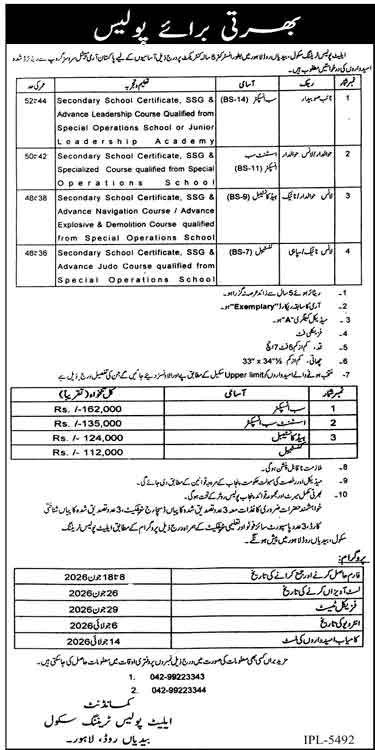 بھرتی برائے پولیس
ایلیٹ پولیس ٹریننگ سکول، بیدیاں روڈ لاہور میں بطور انسٹرکٹرز 5 سالہ کنٹریکٹ پر درج ذیل آسامیوں کے لیے پاکستان آرمی سپیشل سروسز گروپ سے ریٹائرڈ شدہ
امیدواروں کی درخواستیں مطلوب ہیں۔
نمبر شمار رینک آسامی تعلیم و تجربہ عمر کی حد
1 نائب صوبیدار سب انسپکٹر (BS-14) Secondary School Certificate, SSG & Advance Leadership Course Qualified from Special Operations School or Junior Leadership Academy 44 تا 52
2 حوالدار/لانس حوالدار اسسٹنٹ سب انسپکٹر (BS-11) Secondary School Certificate, SSG & Specialized Course qualified from Special Operations School 42 تا 50
3 لانس حوالدار/نائیک ہیڈ کانسٹیبل (BS-9) Secondary School Certificate, SSG & Advance Navigation Course / Advance Explosive & Demolition Course qualified from Special Operations School 38 تا 48
4 لانس نائیک/سپاہی کنسٹیبل (BS-7) Secondary School Certificate, SSG & Advance Judo Course qualified from Special Operations School 36 تا 48
1- ریٹائر ہوئے 5 سال سے زائد عرصہ نہ گزرا ہو۔
2- آرمی کا سابقہ ریکارڈ "Exemplary" ہو۔
3- میڈیکل کیٹگری "A" ہو۔
4- فزیکلی فٹ
5- قد، کم از کم 5 فٹ 7 انچ
6- چھاتی، کم از کم 33" x 34½"
7- منتخب ہونے والے امیدواروں کو Upper limit/سکیل کے مطابق پے اور الاؤنسز دیئے جائیں گے جن کی تفصیل درج ذیل ہے
نمبر شمار آسامی کل تنخواہ (تقریباً)
1 سب انسپکٹر Rs. /-162,000
2 اسسٹنٹ سب انسپکٹر Rs. /-135,000
3 ہیڈ کانسٹیبل Rs. /- 124,000
کنسٹیبل Rs. /- 112,000
8- ملازمت ناقابل پنشن ہوگی۔
9- میڈیکل اور رخصت کی سہولت حکومت پنجاب کے مروجہ قوانین کے مطابق دی جائے گی۔
10- بھرتی مکمل میرٹ اور مجوزہ قواعد پنجاب پولیس رولز کے تحت ہوگی۔
خواہشمند حضرات ضروری کاغذات معہ 3 عدد تصدیق شدہ کاپیاں ڈسچارج سرٹیفکیٹ، 3 عدد تصدیق شدہ کاپیاں شناختی
کارڈ، 3 عدد پاسپورٹ سائز فوٹو اور تعلیمی سرٹیفکیٹ کے ہمراہ درج ذیل پروگرام کے مطابق ایلیٹ پولیس ٹریننگ
سکول، بیدیاں روڈ لاہور میں پیش ہونگے۔
پروگرام:
فارم حاصل کرنے اور جمع کرانے کی تاریخ 8 تا 18 جون 2026
لسٹ آویزاں کرنے کی تاریخ 26 جون 2026
فزیکل ٹیسٹ 29 جون 2026
انٹرویو کی تاریخ 6 جولائی 2026
کامیاب امیدواروں کی لسٹ 14 جولائی 2026
مزید براں کسی بھی معلومات کی صورت میں درج ذیل نمبروں پر دفتری اوقات میں معلومات حاصل کی جاسکتی ہیں۔
1. 042-99223343
2. 042-99223344
کمانڈنٹ
ایلیٹ پولیس ٹریننگ سکول
بیدیاں روڈ، لاہور۔
IPL-5492